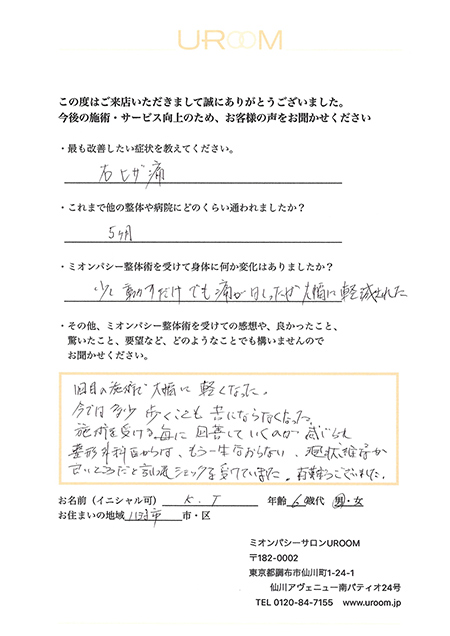 UROOM
この度はご来店いただきまして誠にありがとうございました。
今後の施術・サービス向上のため、お客様の声をお聞かせください
・最も改善したい症状を教えてください。
右ヒザ痛
・これまで他の整体や病院にどのくらい通われましたか？
5ヶ月
・ミオンパシー整体術を受けて身体に何か変化はありましたか？
少し動かすだけでも痛かったが大幅に軽減された
・その他、ミオンパシー整体術を受けての感想や、良かったこと、
驚いたこと、要望など、どのようなことでも構いませんので
お聞かせください。
1回目の施術で大幅に軽くなった。
今では多少歩くことも苦にならなくなった。
施術を受ける毎に回善していくのが感じられ
整形外科医からは、もう一生治らない、現状維持が
良いところだと言われショックを受けていました。有難うございました。
お名前（イニシャル可） K.T 年齢 6 歳代 男・女
お住まいの地域 市・区
ミオンパシーサロンUROOM
〒182-0002
東京都調布市仙川町1-24-1
仙川アヴェニュー南パティオ24号
TEL 0120-84-7155 www.uroom.jp